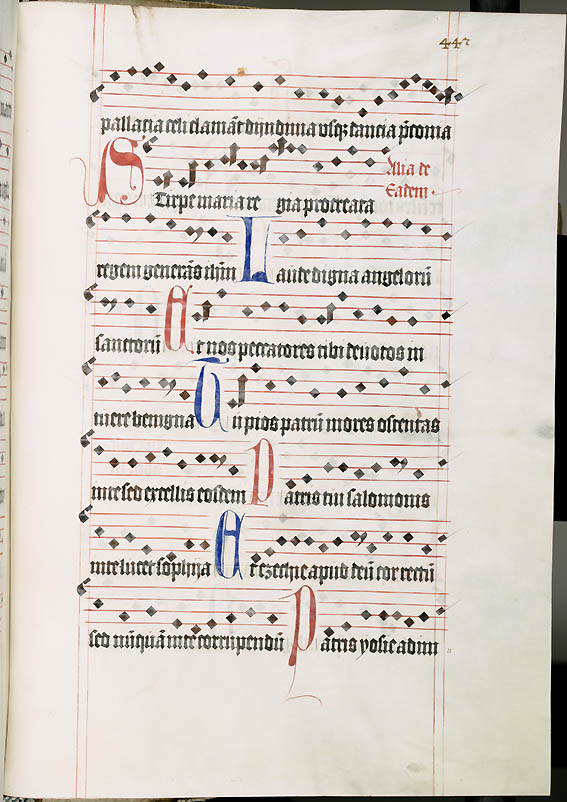 447
pallacia celi clamāt dijndima usqꝫ tancia p̄conia
Alia de
Eadem.
Stirpe maria re gia procreata
regem generās ihm̄ Laude digna angelorū
sanctorū Et nos peccatores tibi devotos in
tuere benigna Tu pios patrū mores ostentas
in te sed excellis eosdem Patris tui salomonis
in te lucet sophia Et ezechie apud deū cor rectū
sed nūquā in te corrūpendū Patris yosie adim